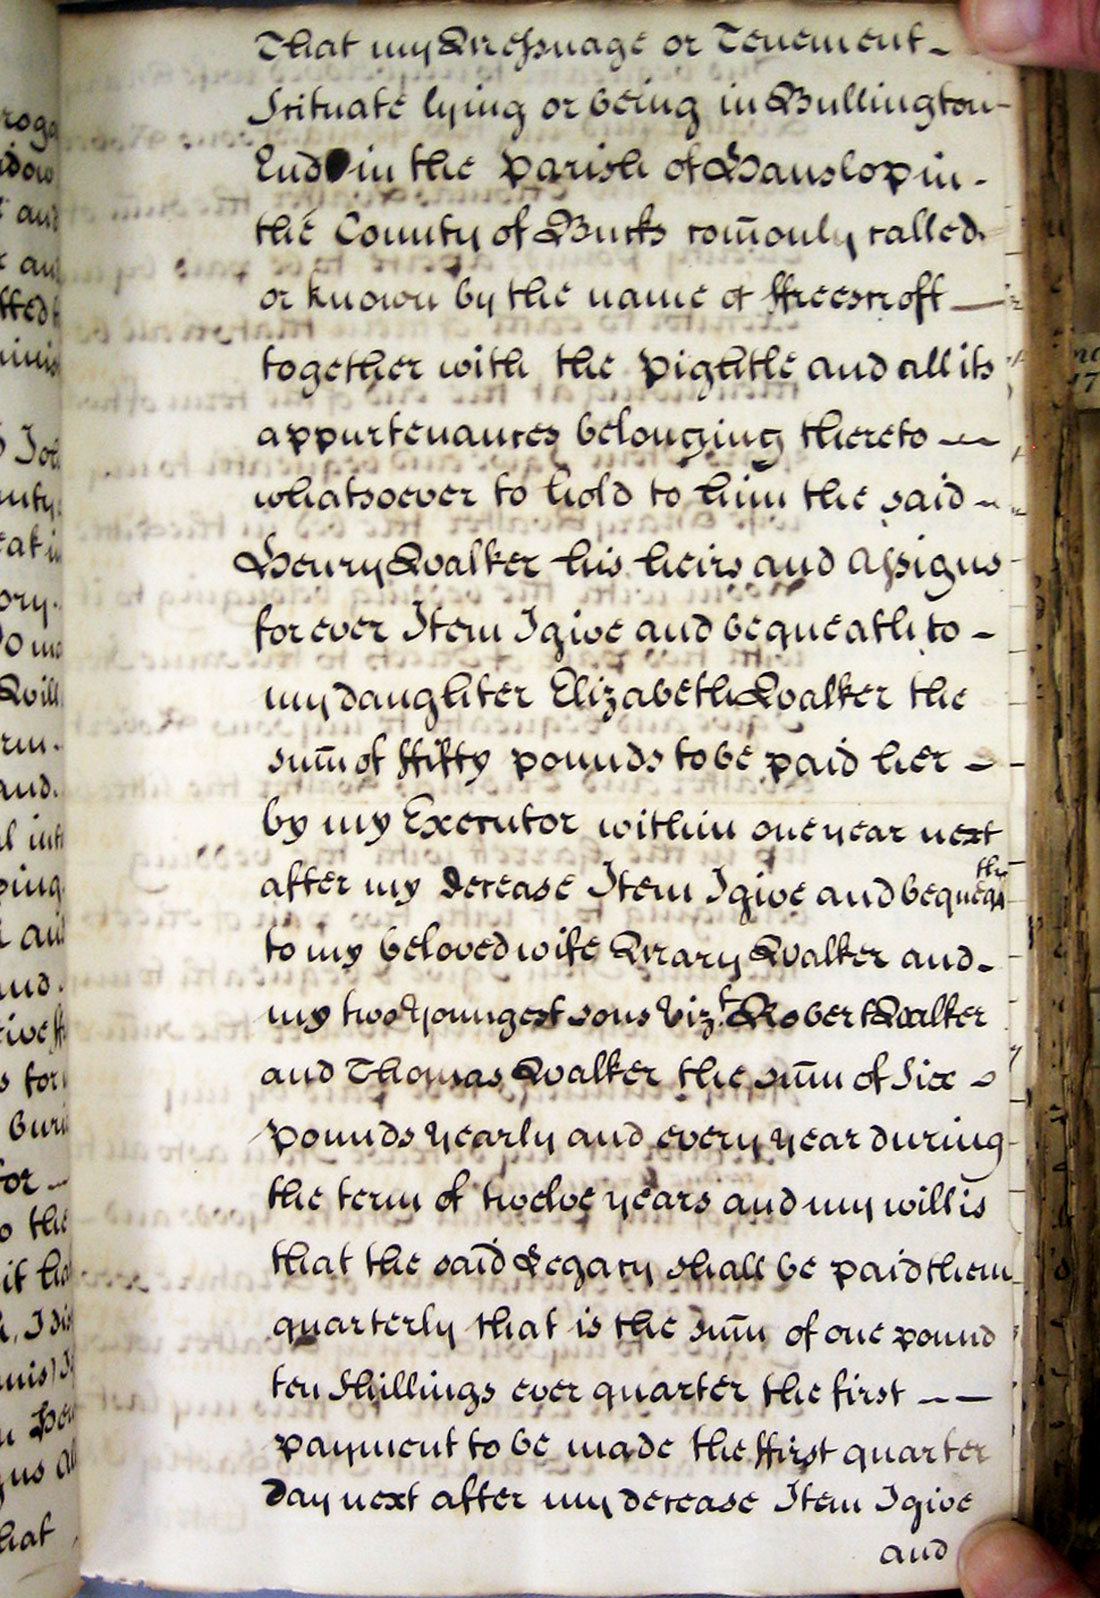 That my Messuage or Tenement
Scituate lying or being in Bullington
End in the parish of Hanslop in
the County of Bucks com̄only called
or known by the name of ffreescroft
together with the Pightle and all its
appurtenances belonging thereto
whatsoever to hold to him the said
Henry Walker his heirs and Assigns
for ever Item I give and bequeath to
my daughter Elizabeth Walker the
sum̄ of ffifty pounds to be paid her
by my Executor within one year next
after my decease Item I give and bequeath
to my beloved wife Mary Walker and
my two youngest sons vizt Robert Walker
and Thomas Walker the sum̄ of Six
pounds yearly and every year during
the term of twelve years and my will is
that the said Legacy shall be paid them
quarterly that is the sum̄ of one pound
ten Shillings ever quarter the first
payment to be made the ffirst quarter
day next after my decease Item I give
and